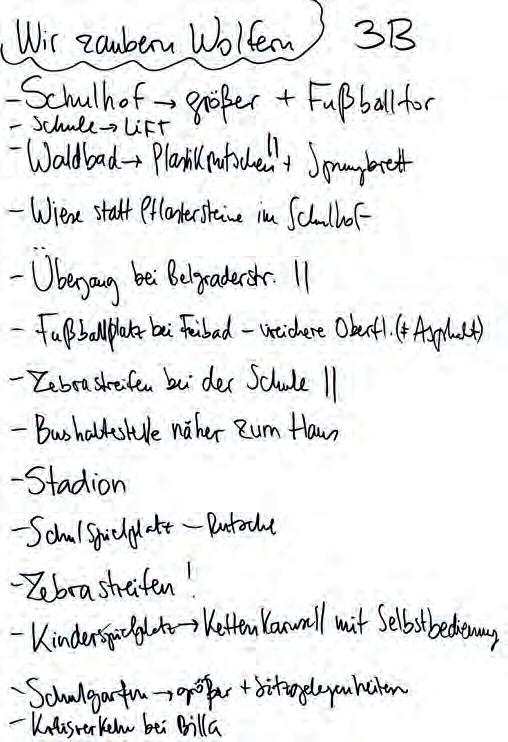 Wir zaubern Wolfern 3B
- Schulhof → größer + Fußballtor
- Schule → Lift
- Waldbad → Plastikrutschen || + Sprungbrett
- Wiese statt Pflastersteine im Schulhof
- Übergang bei Belgraderstr. ||
- Fußballplatz bei Feibad - weichere Oberfl. (≠ Asphalt)
- Zebrastreifen bei der Schule ||
- Bushaltestelle näher zum Haus
- Stadion
- Schulspielplatz - Rutsche
- Zebrastreifen!
- Kinderspielplatz → Kettenkarusell mit Selbstbedienung
- Schulgarten → größer + Sitzgelegenheiten
- Kreisverkehr bei Billa